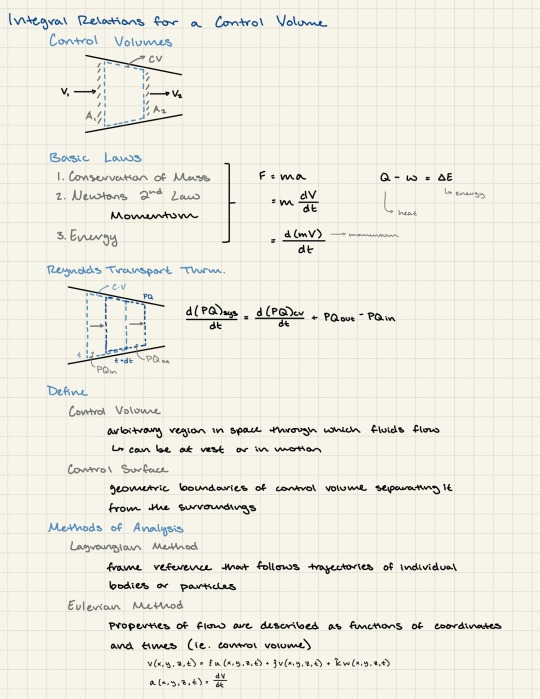 Integral Relations for a Control Volume
Control Volumes
CV
V₁
V₂
A₁
A₂
Basic Laws
1. Conservation of Mass
2. Newtons 2nd Law
Momentum
3. Energy
F = ma
= m dV/dt
= d(mV)/dt → momentum
Q - W = ΔE
↳ energy
↳ heat
Reynolds Transport Thrm.
C.V
PQ
t
t+dt
PQin
PQout
d(PQ)sys/dt = d(PQ)cv/dt + PQout - PQin
Define
Control Volume
arbitrary region in space through which fluids flow
↳ can be at rest or in motion
Control Surface
geometric boundaries of control volume separating it
from the surroundings
Methods of Analysis
Lagrangian Method
frame reference that follows trajectories of individual
bodies or particles
Eulerian Method
Properties of flow are described as functions of coordinates
and times (ie. control volume)
V(x,y,z,t) = îu(x,y,z,t) + ĵv(x,y,z,t) + k̂w(x,y,z,t)
a(x,y,z,t) = dV/dt